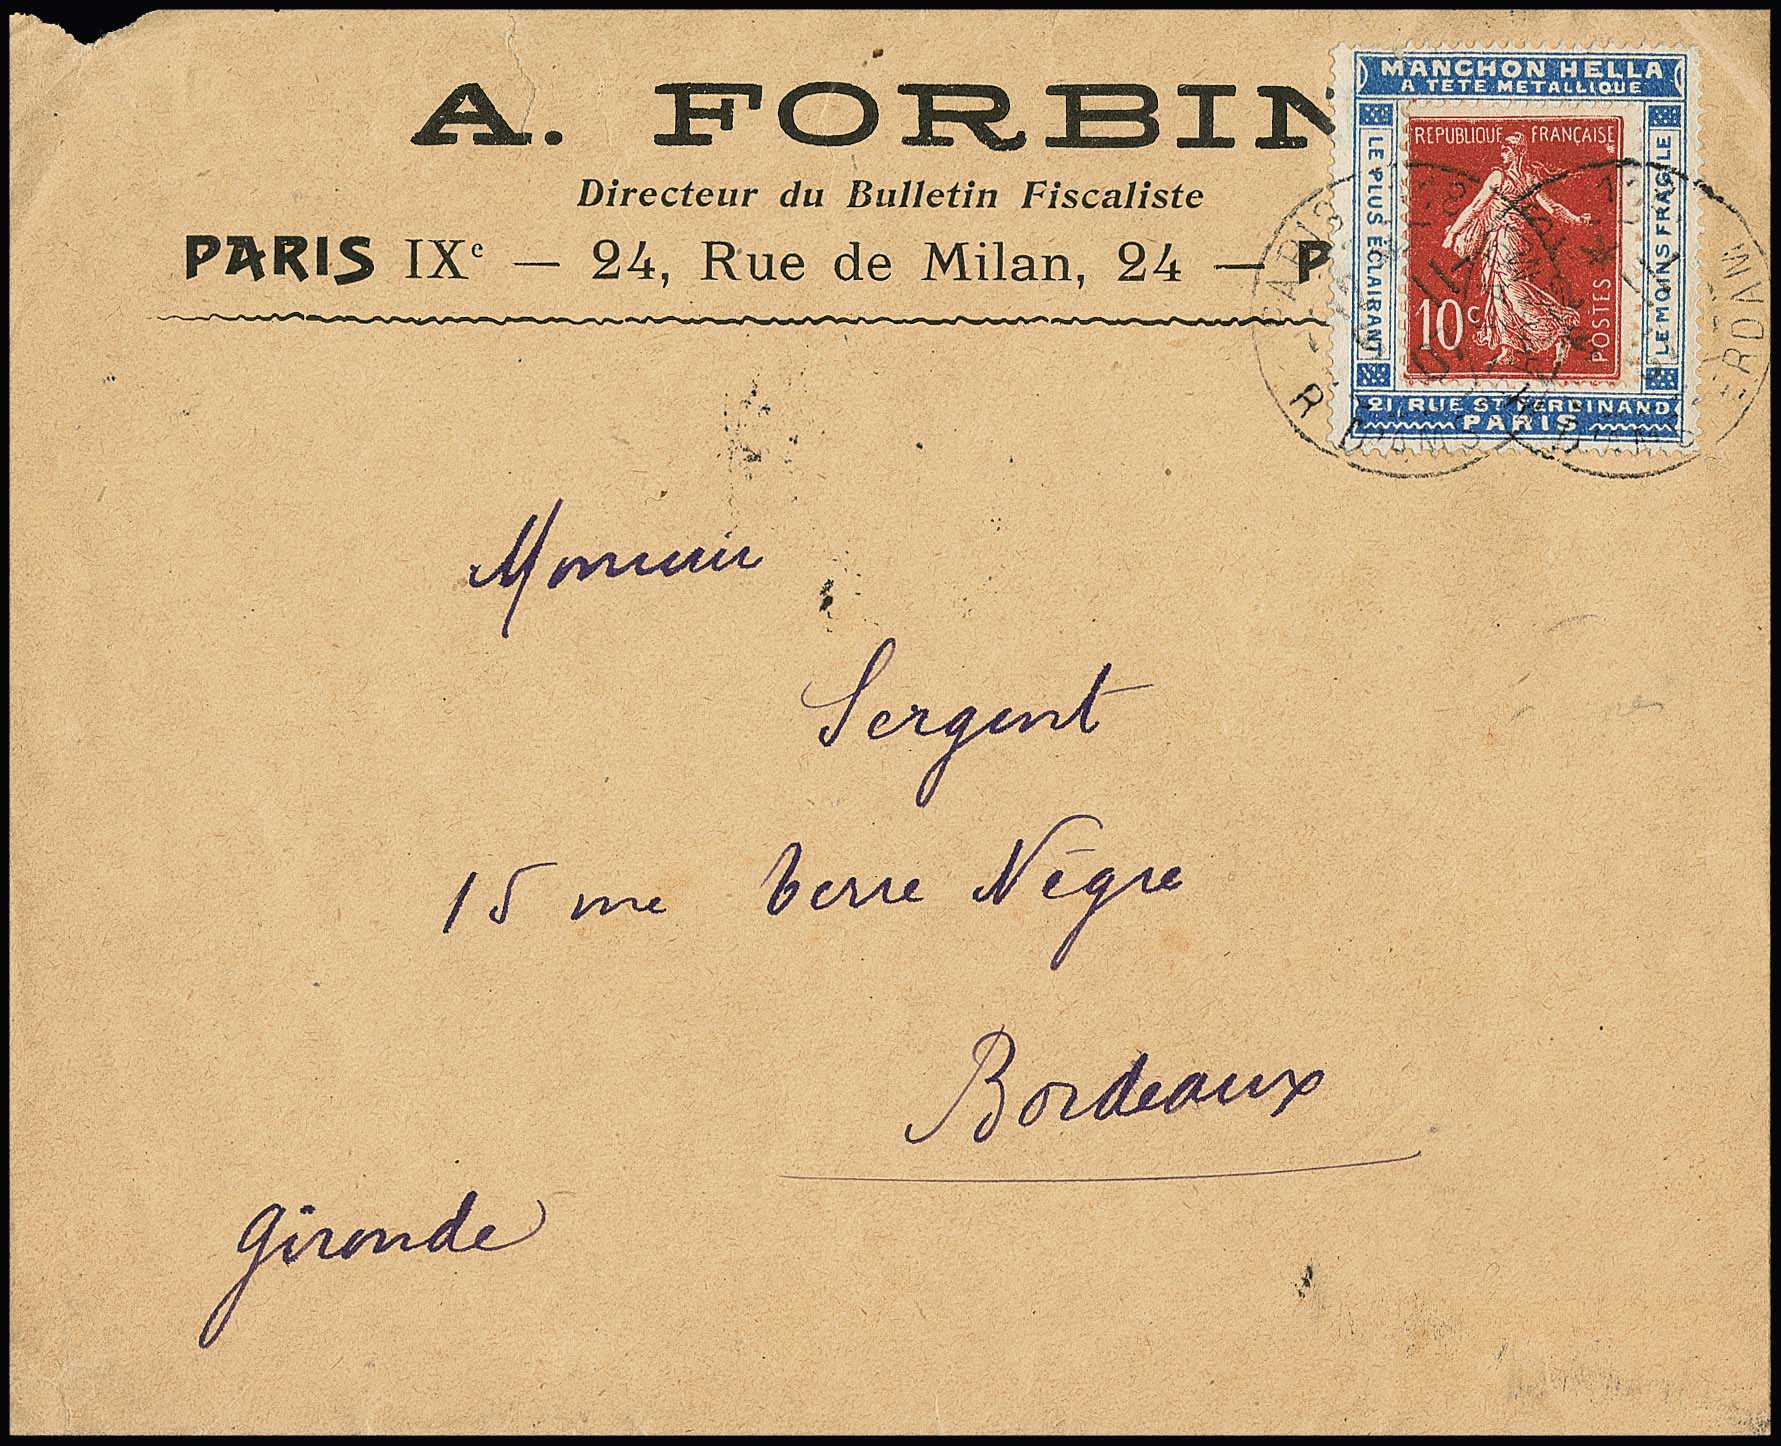 A. FORBIN
Directeur du Bulletin Fiscaliste
PARIS IXe — 24, Rue de Milan, 24 — P
MANCHON HELLA
A TETE METALLIQUE
LE PLUS ECLAIRANT
REPUBLIQUE FRANÇAISE
10c
POSTES
LE MOINS FRAGILE
21, RUE ST FERDINAND
PARIS
PARIS
R. D'AMSTERDAM
Monsieur
Sergent
15 rue Terre Nègre
Bordeaux
Gironde